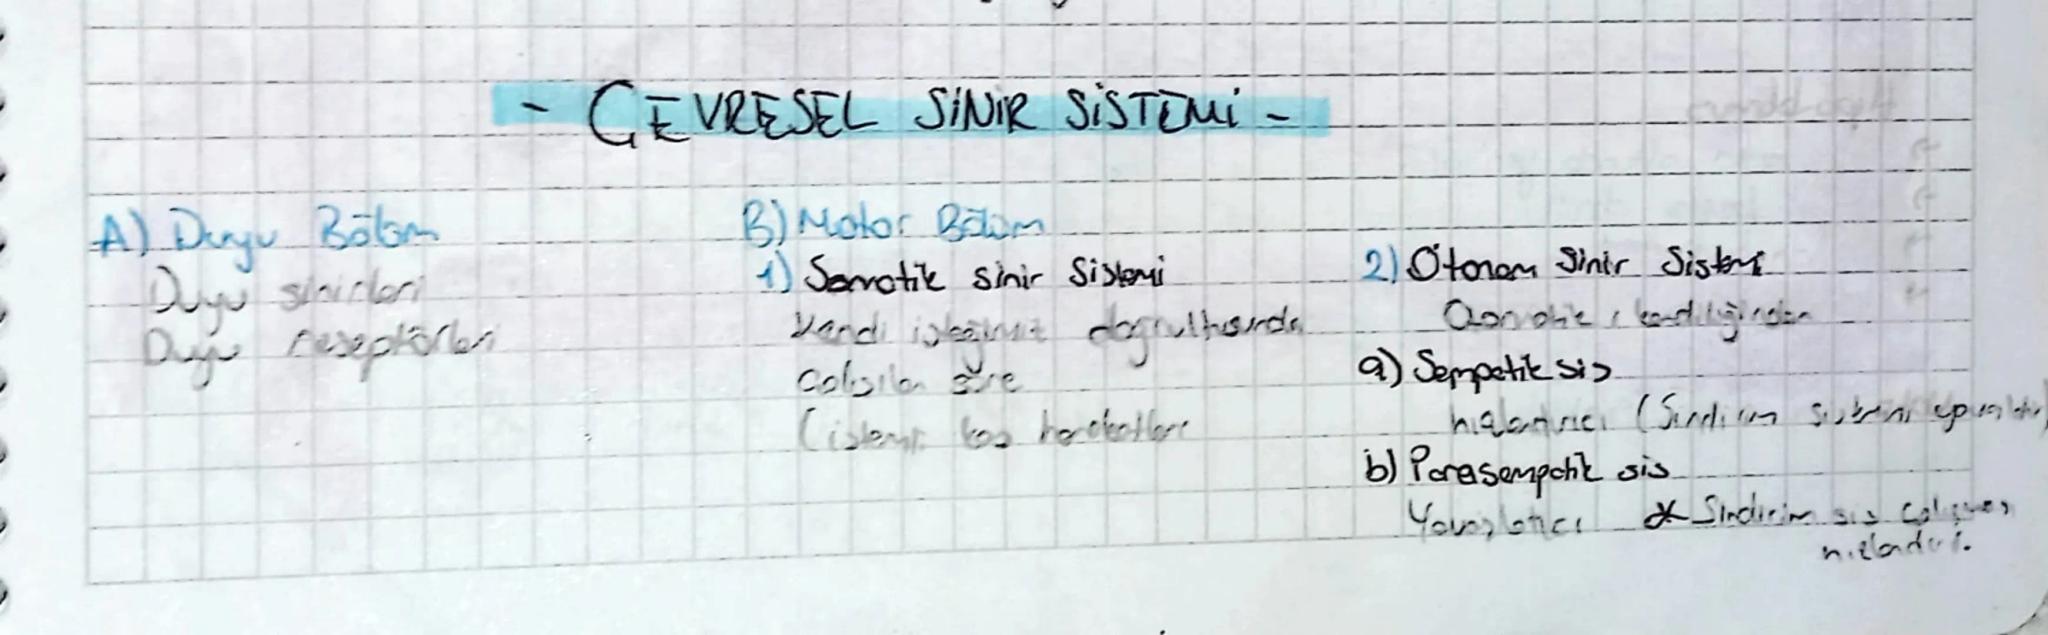 - ÇEVRESEL SİNİR SİSTEMİ -
A) Duyu Bölüm
Duyu sinirleri
Duyu reseptörleri
B) Motor Bölüm
1) Somatik Sinir Sistemi
Kendi isteğimiz doğrultusunda
çalışılan süre
(istemli kas hareketleri
2) Otonom Sinir Sistemi
kendiliğinden
a) Sempatik sis
hızlandırıcı (Sindirim sistemi yavaşlatır)
b) Parasempatik sis
Yavaşlatıcı * Sindirim sis çalışması
hızlandırır.